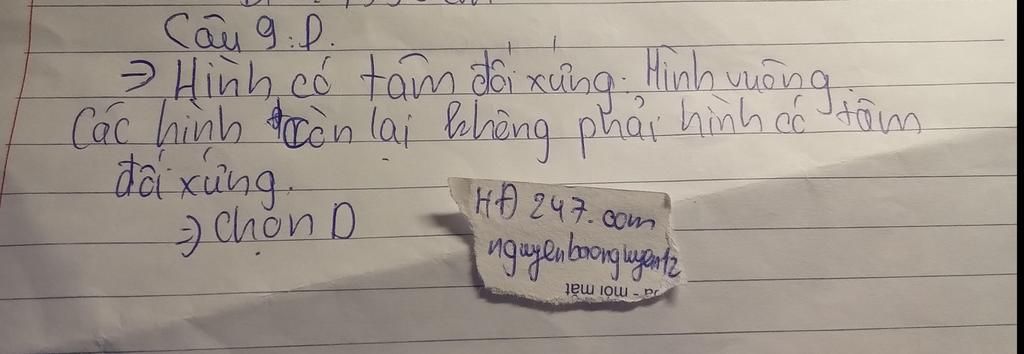 Câu 9: D.
=> Hình có tâm đối xứng: Hình vuông.
Các hình còn lại không phải hình có tâm
đối xứng.
=> Chọn D
HĐ 247.com